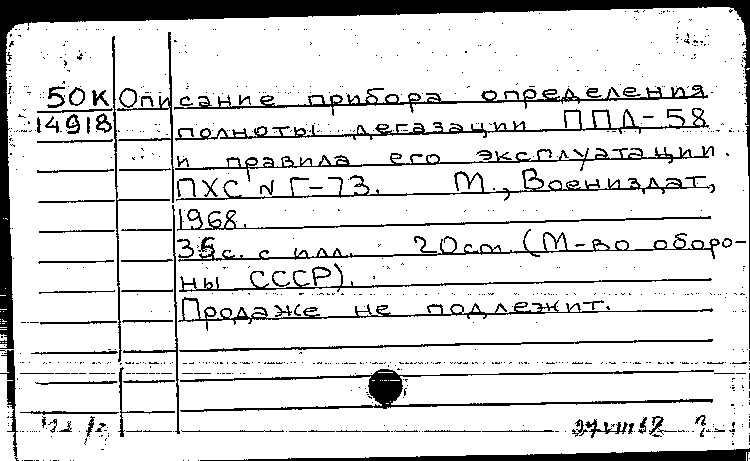 50К Описание прибора определения
14918 полноты дегазации ППД-58
и правила его эксплуатации.
ПХС № Г-73. М., Воениздат,
1968.
36с. с илл. 20см. (М-во оборо-
ны СССР).
Продаже не подлежит.
27 VIII 68